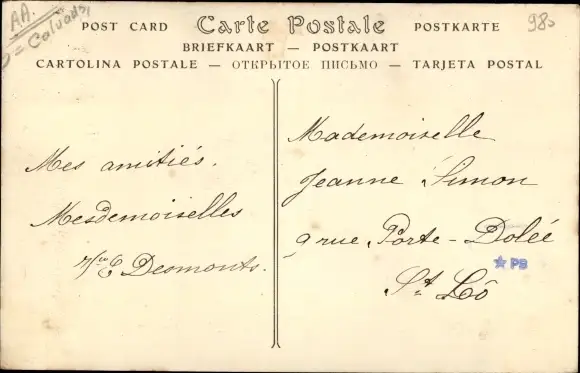 AA.
= Calvados
980
POST CARD Carte Postale POSTKARTE
BRIEFKAART — POSTKAART
CARTOLINA POSTALE — ОТКРЫТОЕ ПИСЬМО — TARJETA POSTAL
Mes amitiés.
Mesdemoiselles
E Desmonts.
Mademoiselle
Jeanne Simon
9 rue Porte-Dolée
PB
St Lô